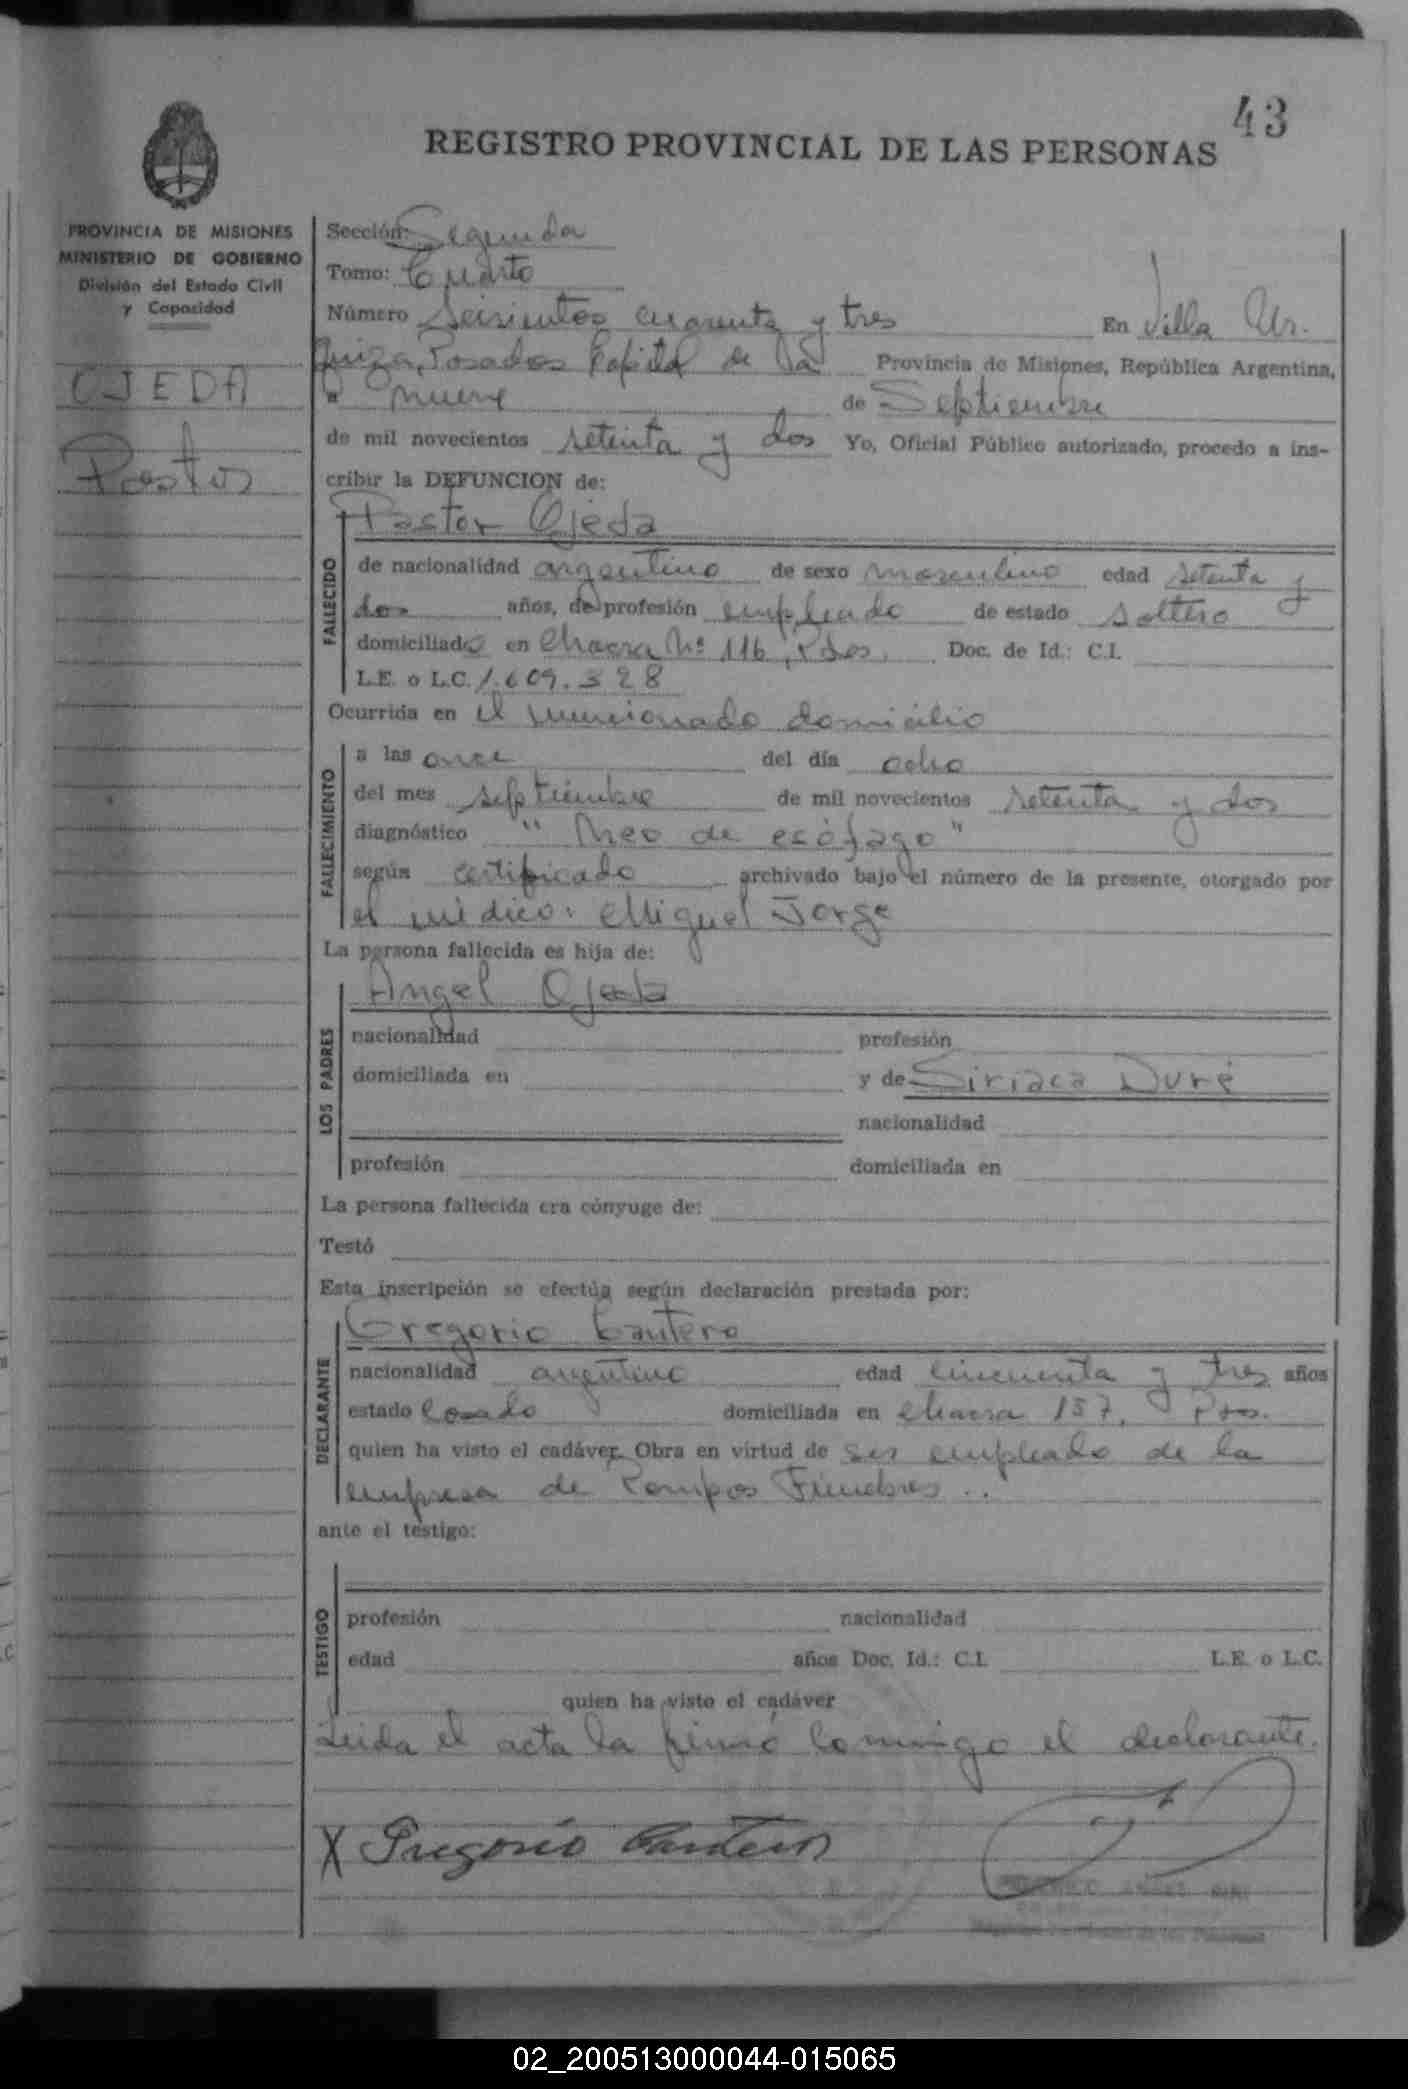 43
REGISTRO PROVINCIAL DE LAS PERSONAS
PROVINCIA DE MISIONES
MINISTERIO DE GOBIERNO
División del Estado Civil
y Capacidad
OJEDA
Pastor
Sección: Segunda
Tomo: Cuarto
Número Seisientos cuarenta y tres En Villa Ur.
quiza, Posadas Capital de la Provincia de Misiones, República Argentina,
a nueve de Septiembre
de mil novecientos setenta y dos Yo, Oficial Público autorizado, procedo a ins-
cribir la DEFUNCION de:
Pastor Ojeda
FALLECIDO
de nacionalidad argentino de sexo masculino edad setenta y
dos años, de profesión empleado de estado soltero
domiciliado en Chacra Nº 116, Pdas. Doc. de Id.: C.I.
L.E. o L.C. 1.609.328
Ocurrida en el mencionado domicilio
FALLECIMIENTO
a las once del día ocho
del mes septiembre de mil novecientos setenta y dos
diagnóstico " Neo de esófago"
según certificado archivado bajo el número de la presente, otorgado por
el médico: Miguel Jorge
La persona fallecida es hija de:
LOS PADRES
Angel Ojeda
nacionalidad profesión
domiciliada en y de Siriaca Duré
nacionalidad
profesión domiciliada en
La persona fallecida era cónyuge de:
Testó
Esta inscripción se efectúa según declaración prestada por:
DECLARANTE
Gregorio Cantero
nacionalidad argentino edad cincuenta y tres años
estado Casado domiciliada en chacra 157, Pdas.
quien ha visto el cadáver. Obra en virtud de ser empleado de la
empresa de Pompas Fúnebres ..
ante el testigo:
TESTIGO
profesión nacionalidad
edad años Doc. Id.: C.I. L.E. o L.C.
quien ha visto el cadáver
Leida el acta la firmó conmigo el declarante.
X Gregorio Cantero
02_200513000044-015065